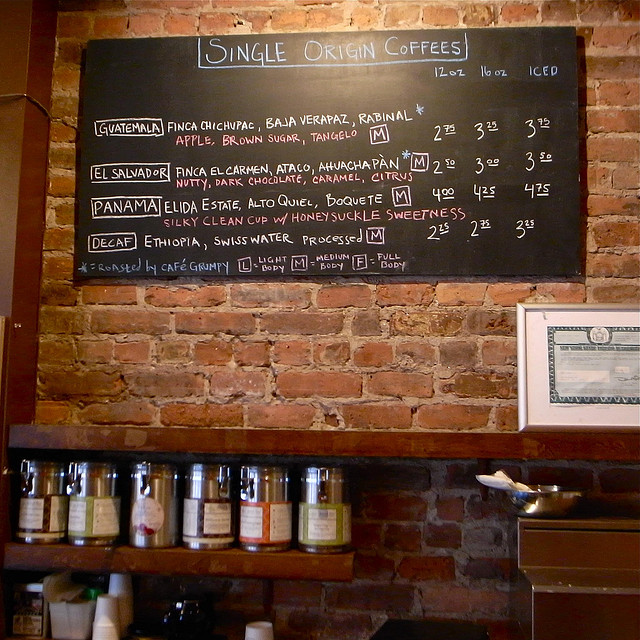 SINGLE ORIGIN COFFEES
12 oz 16 oz ICED
GUATEMALA FINCA CHICHUPAC, BAJA VERAPAZ, RABINAL *
APPLE, BROWN SUGAR, TANGELO M 2 75 3 25 3 75
EL SALVADOR FINCA EL CARMEN, ATACO, AHUACHAPÀN * M 2 50 3 00 3 50
NUTTY, DARK CHOCOLATE, CARAMEL, CITRUS
PANAMA ELIDA ESTATE, ALTO QUIEL, BOQUETE M 4 00 4 25 4 75
SILKY CLEAN CUP W/ HONEYSUCKLE SWEETNESS
DECAF ETHIOPIA, SWISS WATER PROCESSED M 2 25 2 75 3 25
* = ROASTED by CAFÉ GRUMPY L = LIGHT BODY M = MEDIUM BODY F = FULL BODY